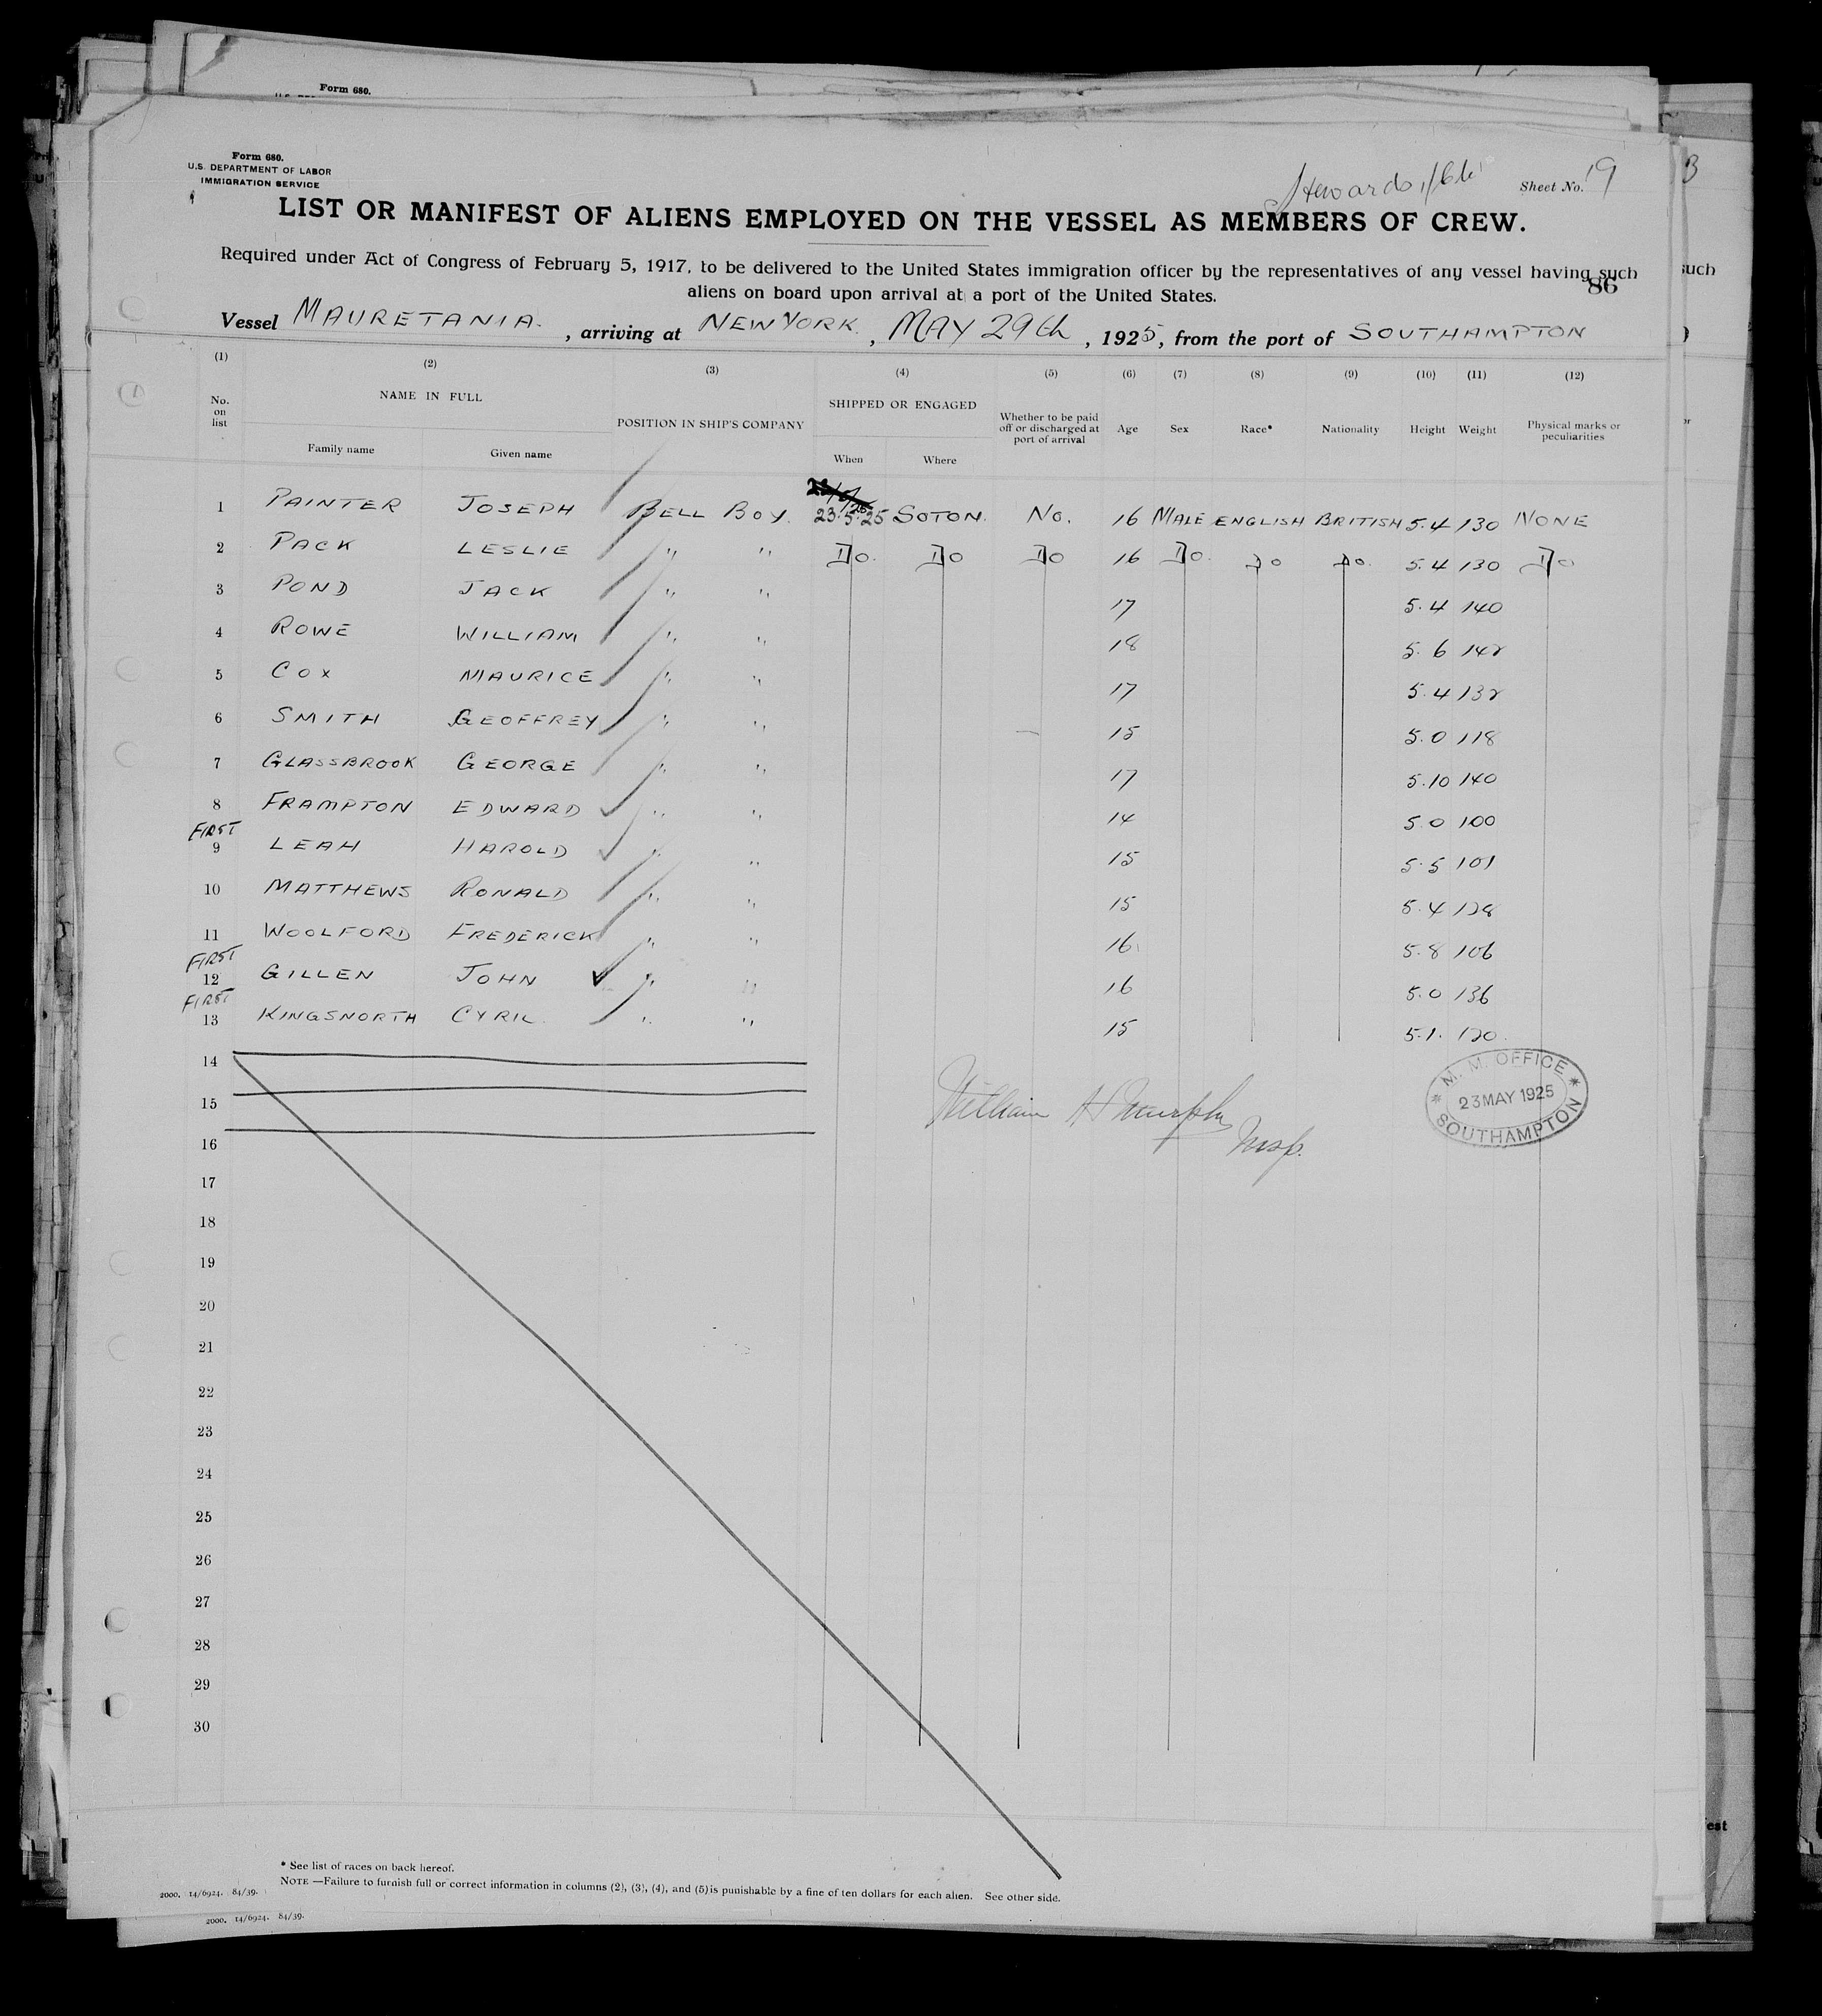 Form 680.
Form 680.
U.S. DEPARTMENT OF LABOR
IMMIGRATION SERVICE
Sheet No. 19
3
LIST OR MANIFEST OF ALIENS EMPLOYED ON THE VESSEL AS MEMBERS OF CREW.
Required under Act of Congress of February 5, 1917, to be delivered to the United States immigration officer by the representatives of any vessel having such
such
86
aliens on board upon arrival at a port of the United States.
Vessel MAURETANIA. , arriving at NEW YORK , MAY 29th , 1925, from the port of SOUTHAMPTON
(1) (2) (3) (4) (5) (6) (7) (8) (9) (10) (11) (12)
No. on list NAME IN FULL POSITION IN SHIP'S COMPANY SHIPPED OR ENGAGED Whether to be paid off or discharged at port of arrival Age Sex Race* Nationality Height Weight Physical marks or peculiarities
Family name Given name When Where
1 PAINTER JOSEPH BELL BOY. 23.5.25 SOTON. No. 16 MALE ENGLISH BRITISH 5.4 130 NONE
2 PACK LESLIE " " Do. Do Do 16 Do. Do Do. 5.4 130 Do
3 POND JACK " " 17 5.4 140
4 ROWE WILLIAM " " 18 5.6 142
5 COX MAURICE " " 17 5.4 132
6 SMITH GEOFFREY " " 15 5.0 118
7 GLASSBROOK GEORGE " " 17 5.10 140
8 FRAMPTON EDWARD " " 14 5.0 100
FIRST
9 LEAH HAROLD " " 15 5.5 101
10 MATTHEWS RONALD " " 15 5.4 128
11 WOOLFORD FREDERICK " " 16 5.8 106
FIRST
12 GILLEN JOHN " " 16 5.0 136
FIRST
13 KINGSNORTH CYRIL " " 15 5.1. 120
14
15
16
M. M. OFFICE
23 MAY 1925
SOUTHAMPTON
William H Murphy
Insp.
17
18
19
20
21
22
23
24
25
26
27
28
29
30
* See list of races on back hereof.
NOTE —Failure to furnish full or correct information in columns (2), (3), (4), and (5) is punishable by a fine of ten dollars for each alien. See other side.
2000. 14/6924. 84/39.
2000. 14/6924. 84/39.